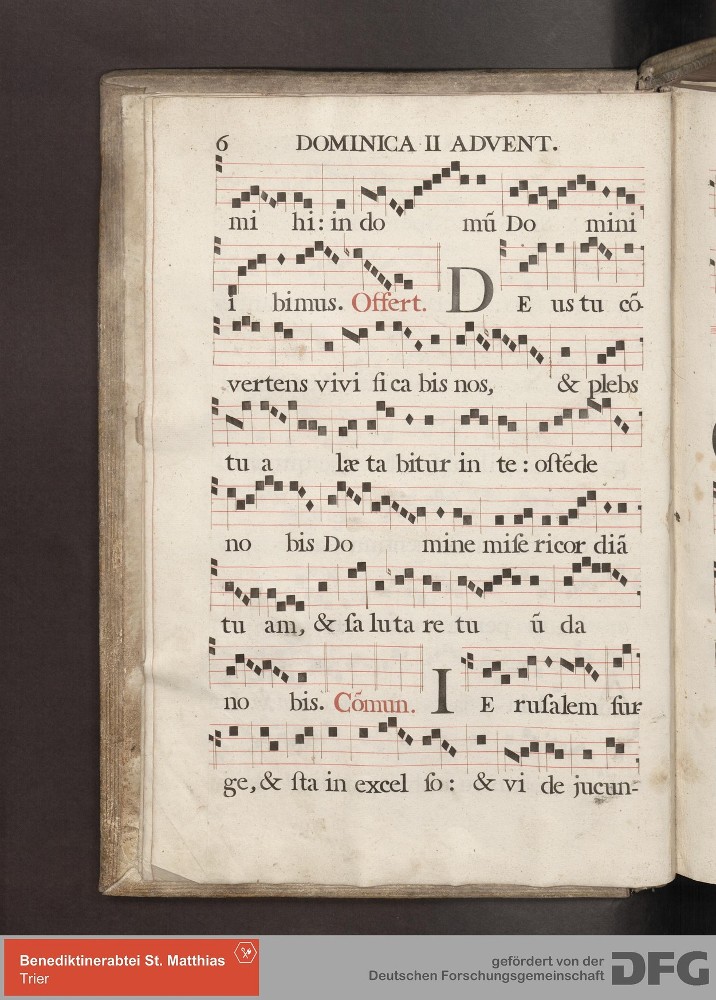 6 DOMINICA II ADVENT.
mi hi: in do mũ Do mini
i bimus. Offert. D E us tu cõ-
vertens vivi ſi ca bis nos, & plebs
tu a læ ta bitur in te: oſtẽde
no bis Do mine miſe ricor diã
tu am, & ſa lu ta re tu ũ da
no bis. Cõmun. I E ruſalem ſur-
ge, & ſta in excel ſo: & vi de jucun-
Benediktinerabtei St. Matthias
Trier
gefördert von der
Deutschen Forschungsgemeinschaft DFG